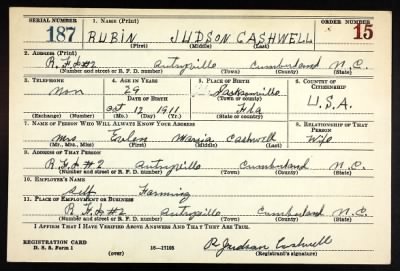 SERIAL NUMBER 1. NAME (Print) ORDER NUMBER
187 RUBIN JUDSON CASHWELL 15
(First) (Middle) (Last)
2. ADDRESS (Print)
R.F.D #2 Autryville Cumberland N.C.
(Number and street or R. F. D. number) (Town) (County) (State)
3. TELEPHONE 4. AGE IN YEARS 5. PLACE OF BIRTH 6. COUNTRY OF CITIZENSHIP
Non 29 Jacksonville
DATE OF BIRTH (Town or county) U.S.A.
Oct 12 1911 Fla
(Exchange) (Number) (Mo.) (Day) (Yr.) (State or country)
7. NAME OF PERSON WHO WILL ALWAYS KNOW YOUR ADDRESS 8. RELATIONSHIP OF THAT PERSON
Mrs Cashwell Wife
(Mr., Mrs., Miss) (First) (Middle) (Last)
9. ADDRESS OF THAT PERSON
R.F.D #2 Autryville Cumberland N.C.
(Number and street or R. F. D. number) (Town) (County) (State)
10. EMPLOYER'S NAME
Self Farming
11. PLACE OF EMPLOYMENT OR BUSINESS
R.F.D #2 Autryville Cumberland N.C.
(Number and street or R. F. D. number) (Town) (County) (State)
I AFFIRM THAT I HAVE VERIFIED ABOVE ANSWERS AND THAT THEY ARE TRUE.
REGISTRATION CARD
D. S. S. Form 1 (over) 16-17105 R Judson Cashwell
(Registrant's signature)